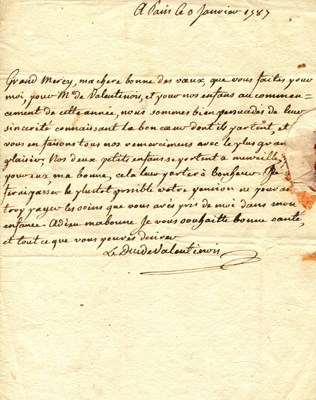 A Paris le 8 Janvier 1787
Grand Mercy, ma chere bonne des vœux, que vous faites pour
moi, pour Me de Valentinois, et pour nos enfans au commen-
cement de cette année, nous sommes bien persuadés de leur
sincerité connaissant le bon cœur dont ils partent, et
vous en faisons tous nos remercimens avec le plus grand
plaisir, Nos deux petits enfans se portent a merveille,
pour eux ma bonne, cela leur portera Bonheur. Je
ferai passer le plustot possible votre pension ne pouvant
trop payer les soins que vous avés pris de moi dans mon
enfance. Adieu ma bonne Je vous souhaitte bonne santé,
et tout ce que vous pouvés desirer
Le Duc de Valentinois